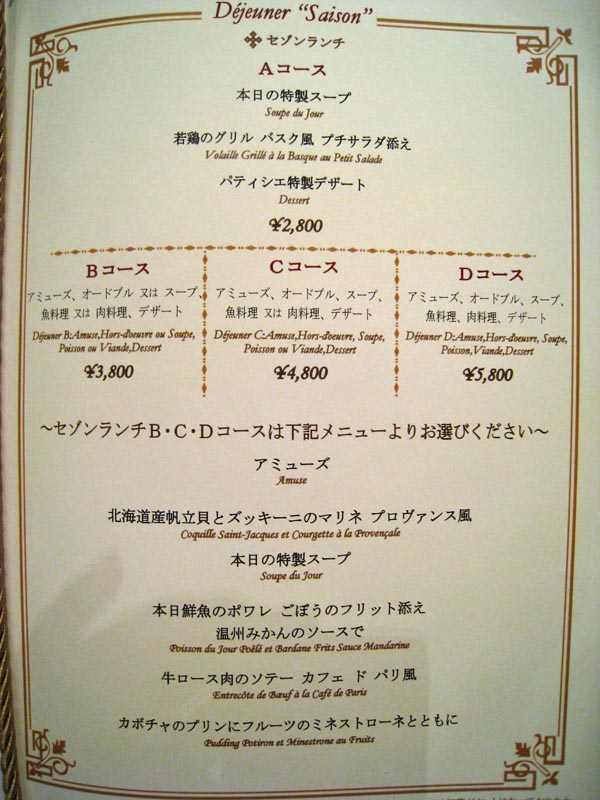 Déjeuner "Saison"
セゾンランチ
Aコース
本日の特製スープ
Soupe du Jour
若鶏のグリル バスク風 プチサラダ添え
Volaille Grillé à la Basque au Petit Salade
パティシエ特製デザート
Dessert
¥2,800
Bコース
アミューズ、オードブル 又は スープ、
魚料理 又は 肉料理、デザート
Déjeuner B:Amuse,Hors-d'oeuvre ou Soupe,
Poisson ou Viande,Dessert
¥3,800
Cコース
アミューズ、オードブル、スープ、
魚料理 又は 肉料理、デザート
Déjeuner C:Amuse,Hors-d'oeuvre, Soupe,
Poisson ou Viande,Dessert
¥4,800
Dコース
アミューズ、オードブル、スープ、
魚料理、肉料理、デザート
Déjeuner D:Amuse,Hors-d'oeuvre, Soupe,
Poisson,Viande,Dessert
¥5,800
～セゾンランチB・C・Dコースは下記メニューよりお選びください～
アミューズ
Amuse
北海道産帆立貝とズッキーニのマリネ プロヴァンス風
Coquille Saint-Jacques et Courgette à la Provençale
本日の特製スープ
Soupe du Jour
本日鮮魚のポワレ ごぼうのフリット添え
温州みかんのソースで
Poisson du Jour Poêlé et Bardane Frits Sauce Mandarine
牛ロース肉のソテー カフェ ド パリ風
Entrecôte de Bœuf à la Café de Paris
カボチャのプリンにフルーツのミネストローネとともに
Pudding Potiron et Minestrone au Fruits